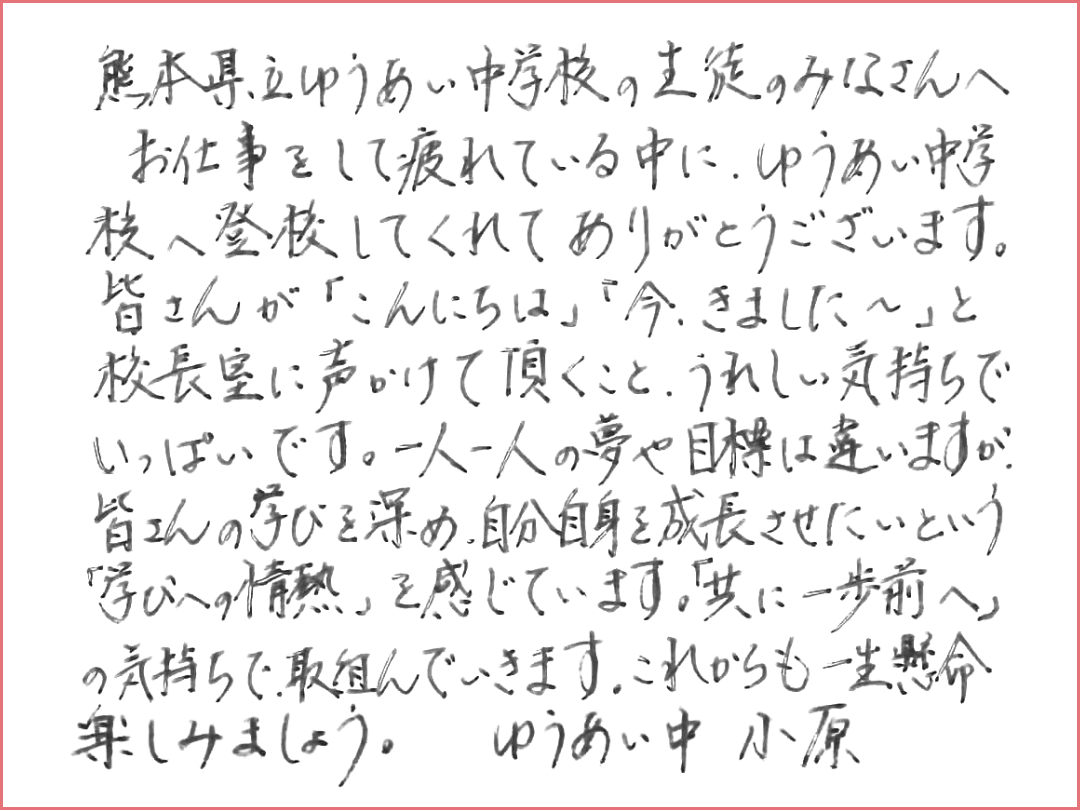 熊本県立ゆうあい中学校の生徒のみなさんへ
お仕事をして疲れている中に、ゆうあい中学
校へ登校してくれてありがとうございます。
皆さんが「こんにちは」「今、きました～」と
校長室に声かけて頂くこと、うれしい気持ちで
いっぱいです。一人一人の夢や目標は違いますが、
皆さんの学びを深め、自分自身を成長させたいという
「学びへの情熱」を感じています。「共に一歩前へ」
の気持ちで、取組んでいきます。これからも一生懸命
楽しみましょう。　ゆうあい中　小原